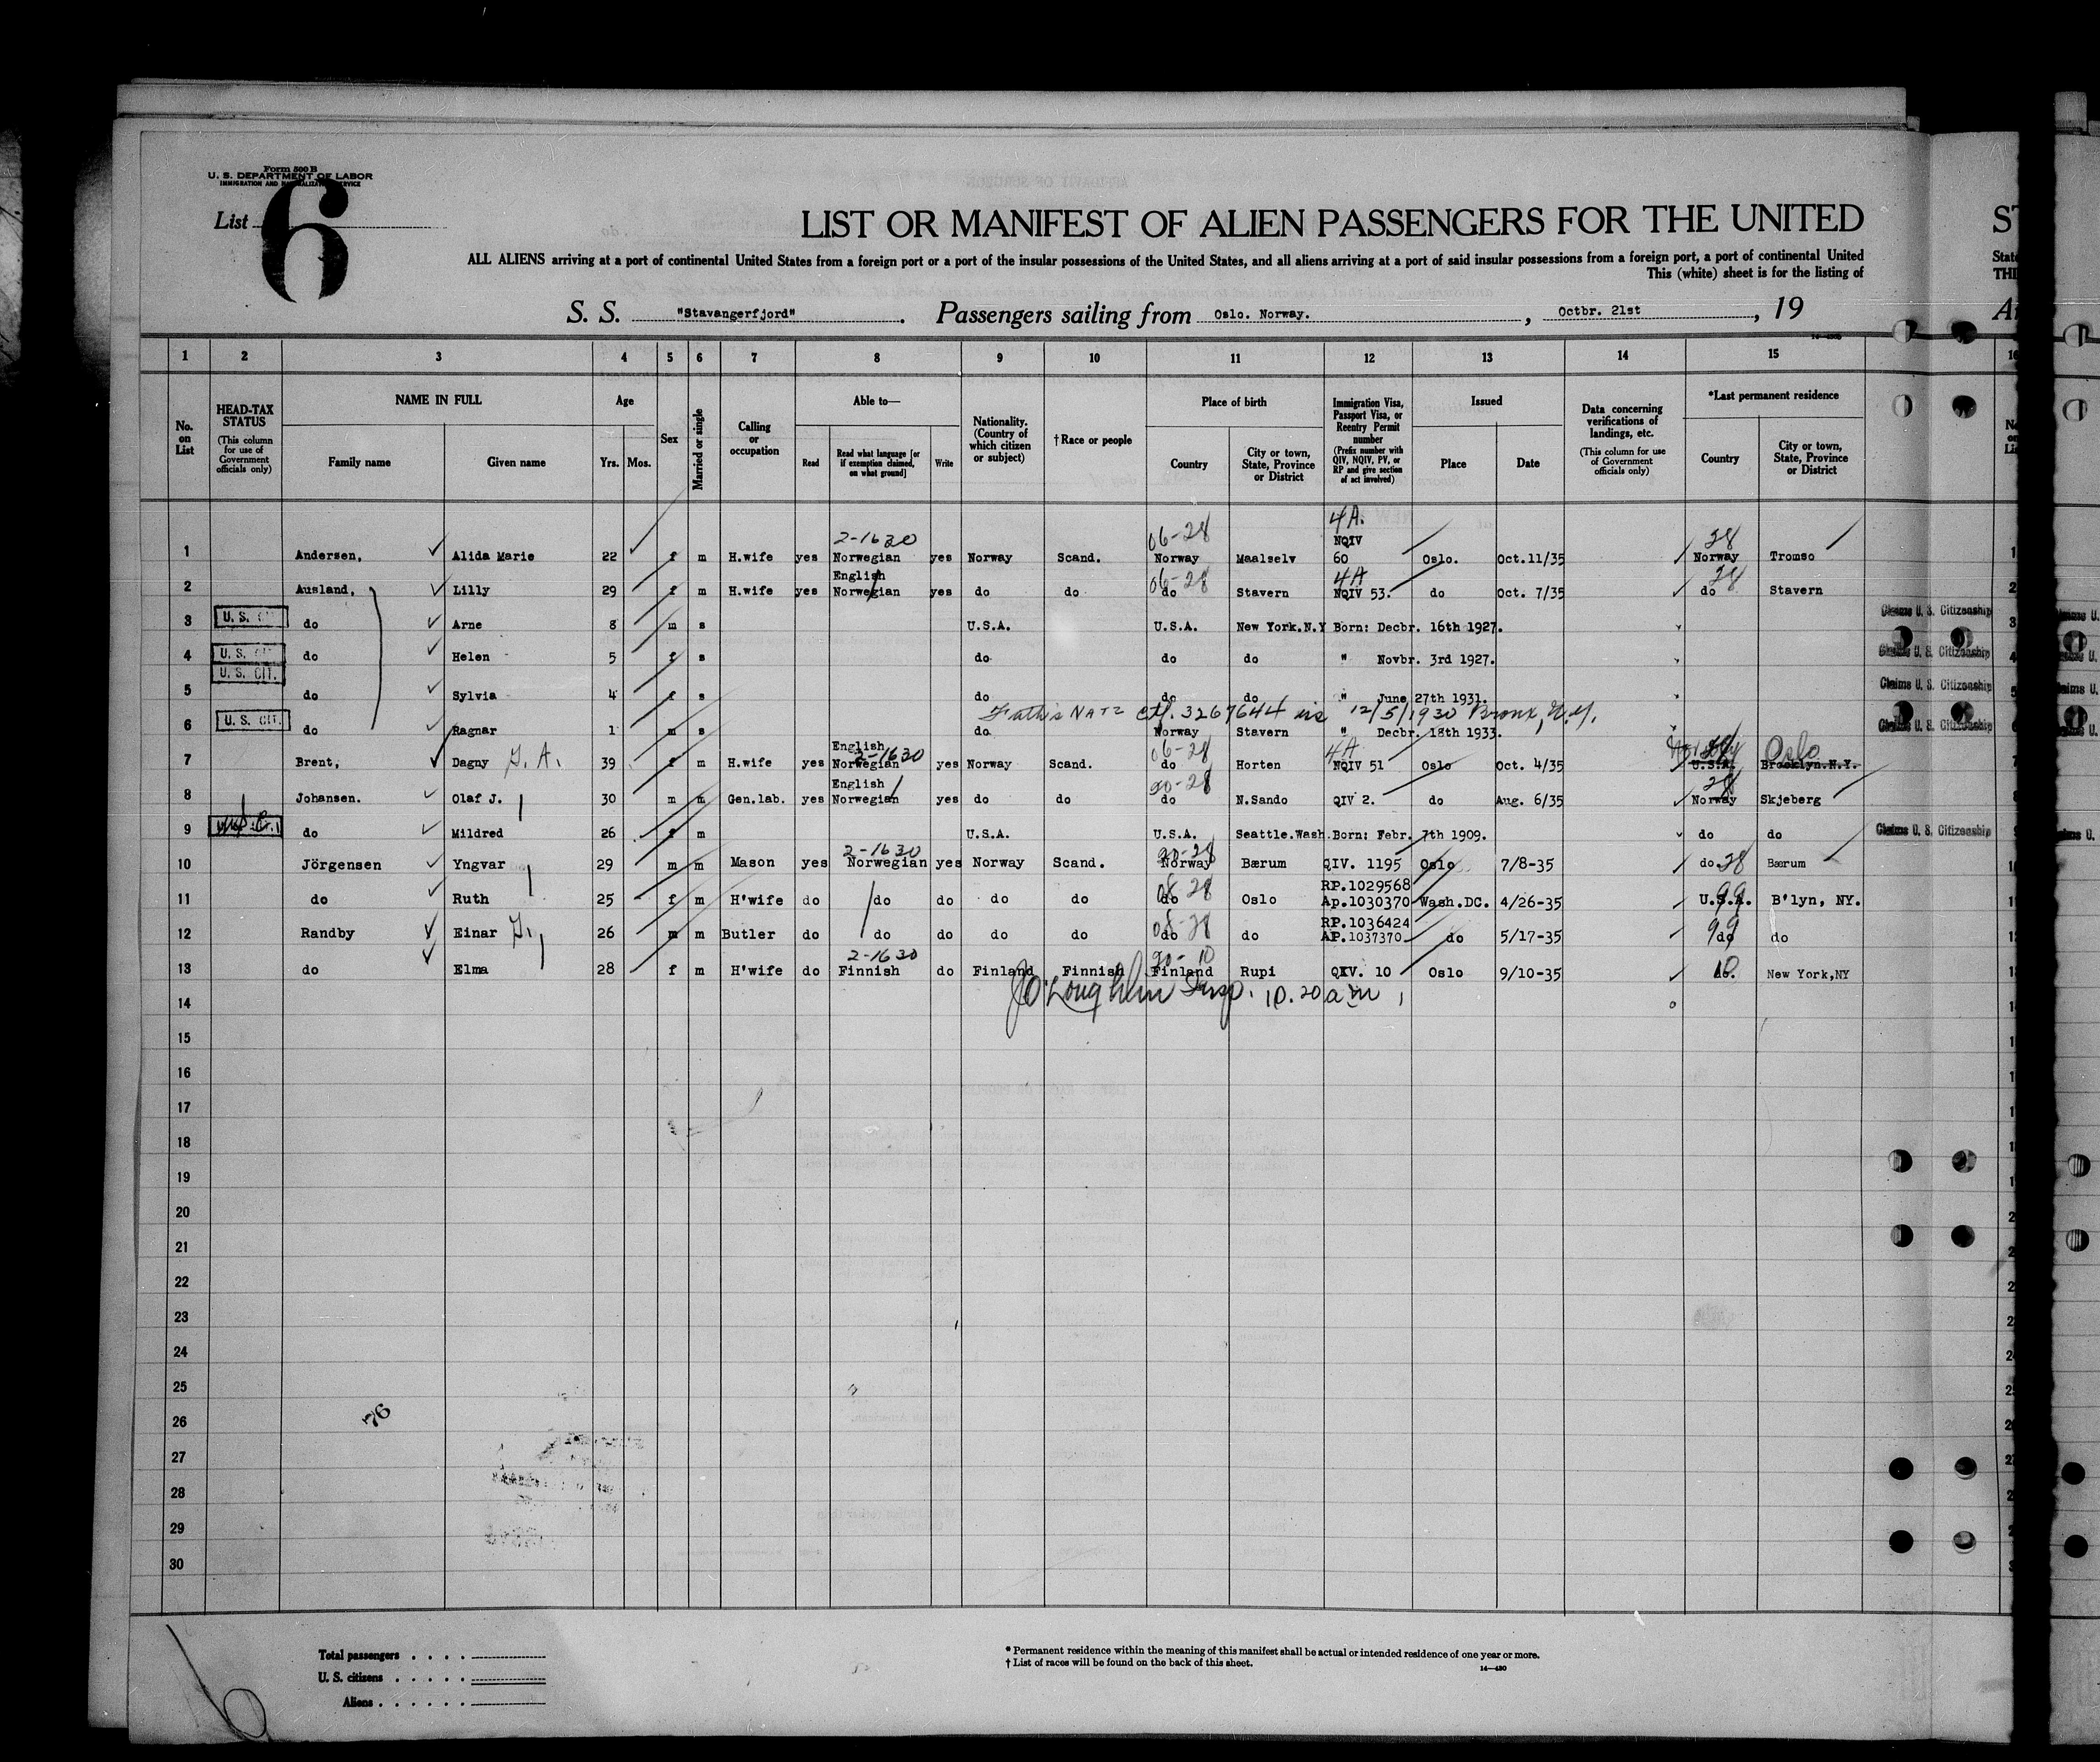 Form 500 B
U. S. DEPARTMENT OF LABOR
IMMIGRATION AND NATURALIZATION SERVICE
List 6
LIST OR MANIFEST OF ALIEN PASSENGERS FOR THE UNITED
ALL ALIENS arriving at a port of continental United States from a foreign port or a port of the insular possessions of the United States, and all aliens arriving at a port of said insular possessions from a foreign port, a port of continental United
This (white) sheet is for the listing of
S. S. "Stavangerfjord". Passengers sailing from Oslo. Norway. , Octbr. 21st , 19
1 2 3 4 5 6 7 8 9 10 11 12 13 14 15
No. on List
HEAD-TAX STATUS (This column for use of Government officials only)
NAME IN FULL
Family name Given name
Age
Yrs. Mos.
Sex
Married or single
Calling or occupation
Able to—
Read Read what language [or if exemption claimed, on what ground] Write
Nationality. (Country of which citizen or subject)
†Race or people
Place of birth
Country City or town, State, Province or District
Immigration Visa, Passport Visa, or Reentry Permit number (Prefix number with QIV, NQIV, PV, or RP and give section of act involved)
Issued
Place Date
Data concerning verifications of landings, etc. (This column for use of Government officials only)
*Last permanent residence
Country City or town, State, Province or District
2-1630 06-28 4A. NQIV 28
1 Andersen, Alida Marie 22 f m H.wife yes Norwegian yes Norway Scand. Norway Maalselv 60 Oslo. Oct.11/35 Norway Tromso
English 06-28 4A 28
2 Ausland, Lilly 29 f m H.wife yes Norwegian yes do do do Stavern NQIV 53. do Oct. 7/35 do Stavern
3 U.S. do Arne 8 m s U.S.A. U.S.A. New York.N.Y Born: Decbr. 16th 1927. Claims U. S. Citizenship
4 U.S. do Helen 5 f s do do do " Novbr. 3rd 1927. Claims U. S. Citizenship
U.S. CIT.
5 do Sylvia 4 f s do do do " June 27th 1931. Claims U. S. Citizenship
Natz Ctf. 3267644 12/5/1930 Bronx, N.Y.
6 U.S. CIT. do Ragnar 1 m s do Norway Stavern " Decbr. 18th 1933. Claims U. S. Citizenship
English 2-1630 06-28 4A Oslo
7 Brent, Dagny 39 f m H.wife yes Norwegian yes Norway Scand. do Horten NQIV 51 Oslo Oct. 4/35 U.S.A. Brooklyn.N.Y.
English 20-28 28
8 Johansen. Olaf J. 30 m m Gen.lab. yes Norwegian yes do do do N.Sando QIV 2. do Aug. 6/35 Norway Skjeberg
9 do Mildred 26 f m U.S.A. U.S.A. Seattle.Wash. Born: Febr. 7th 1909. do do Claims U. S. Citizenship
2-1630 20-28
10 Jörgensen Yngvar 29 m m Mason yes Norwegian yes Norway Scand. Norway Bærum QIV. 1195 Oslo 7/8-35 do 28 Bærum
08-28 RP.1029568 99
11 do Ruth 25 f m H'wife do do do do do do Oslo Ap.1030370 Wash.DC. 4/26-35 U.S.A. B'lyn, NY.
08-28 RP.1036424 99
12 Randby Einar 26 m m Butler do do do do do do do AP.1037370 do 5/17-35 do do
2-1630 20-10 10
13 do Elma 28 f m H'wife do Finnish do Finland Finnish Finland Rupi QIV. 10 Oslo 9/10-35 do. New York,NY
J O'Loughlin Insp. 10.20 am
14
15
16
17
18
19
20
21
22
23
24
25
26
76
27
28
29
30
Total passengers
U. S. citizens
Aliens
* Permanent residence within the meaning of this manifest shall be actual or intended residence of one year or more.
† List of races will be found on the back of this sheet.
14—480